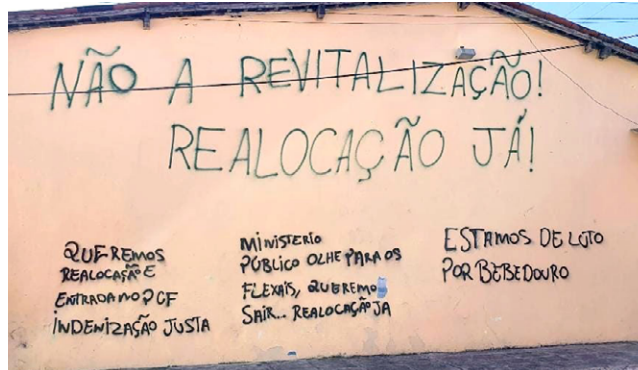 NÃO A REVITALIZAÇÃO!
REALOCAÇÃO JÁ!
QUEREMOS
REALOCAÇÃO E
ENTRADA NO PCF
INDENIZAÇÃO JUSTA
MINISTERIO
PÚBLICO OLHE PARA OS
FLEXAIS, QUEREMO
SAIR.. REALOCAÇÃO JA
ESTAMOS DE LUTO
POR BEBEDOURO